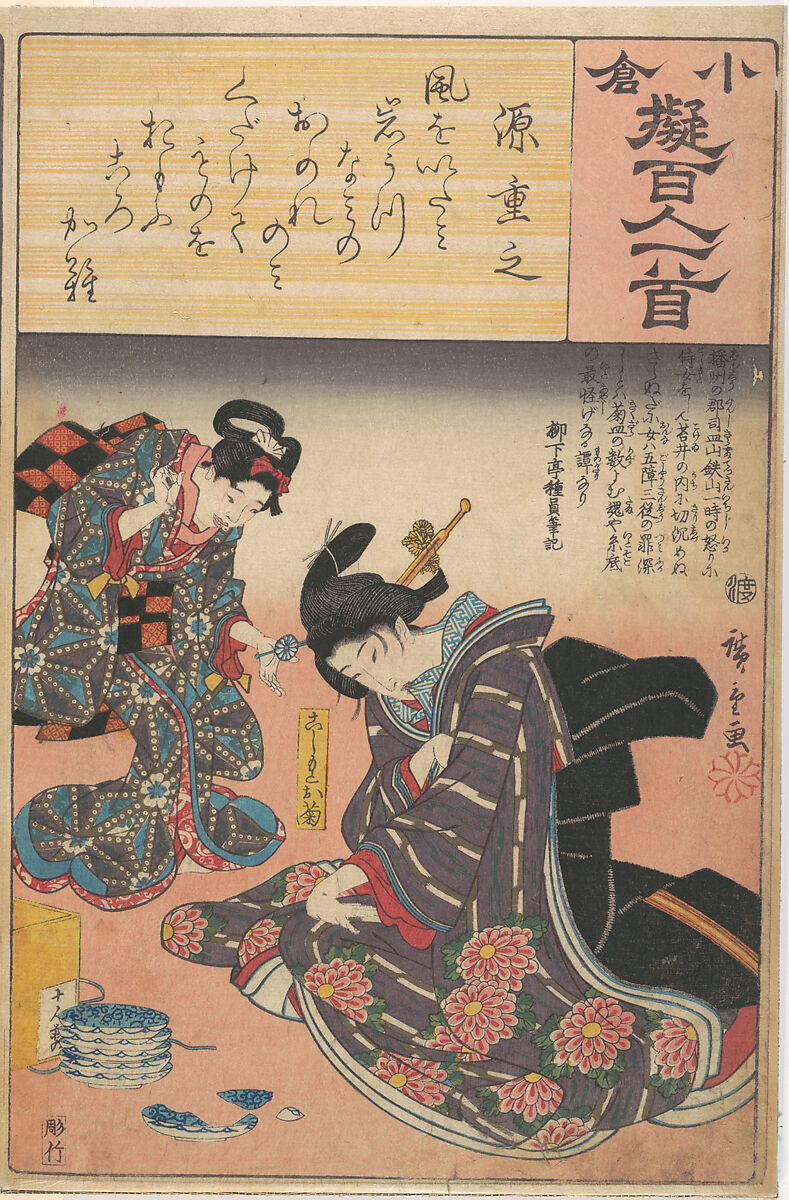 小倉
擬百人一首
源重之
風をいたミ
岩うつ
なミの
おのれ
のミ
くだけて
ものを
おもふ
ころ
かな
播州の郡司皿山鉄山一時の怒りに
侍女を
苔井の内に切沉めぬ
女ハ五障三従の罪深
菊皿の数よむ魂や糸底
の最怪げなる譚なり
柳下亭種員筆記
渡
廣重画
こしもとお菊
十人前
彫竹